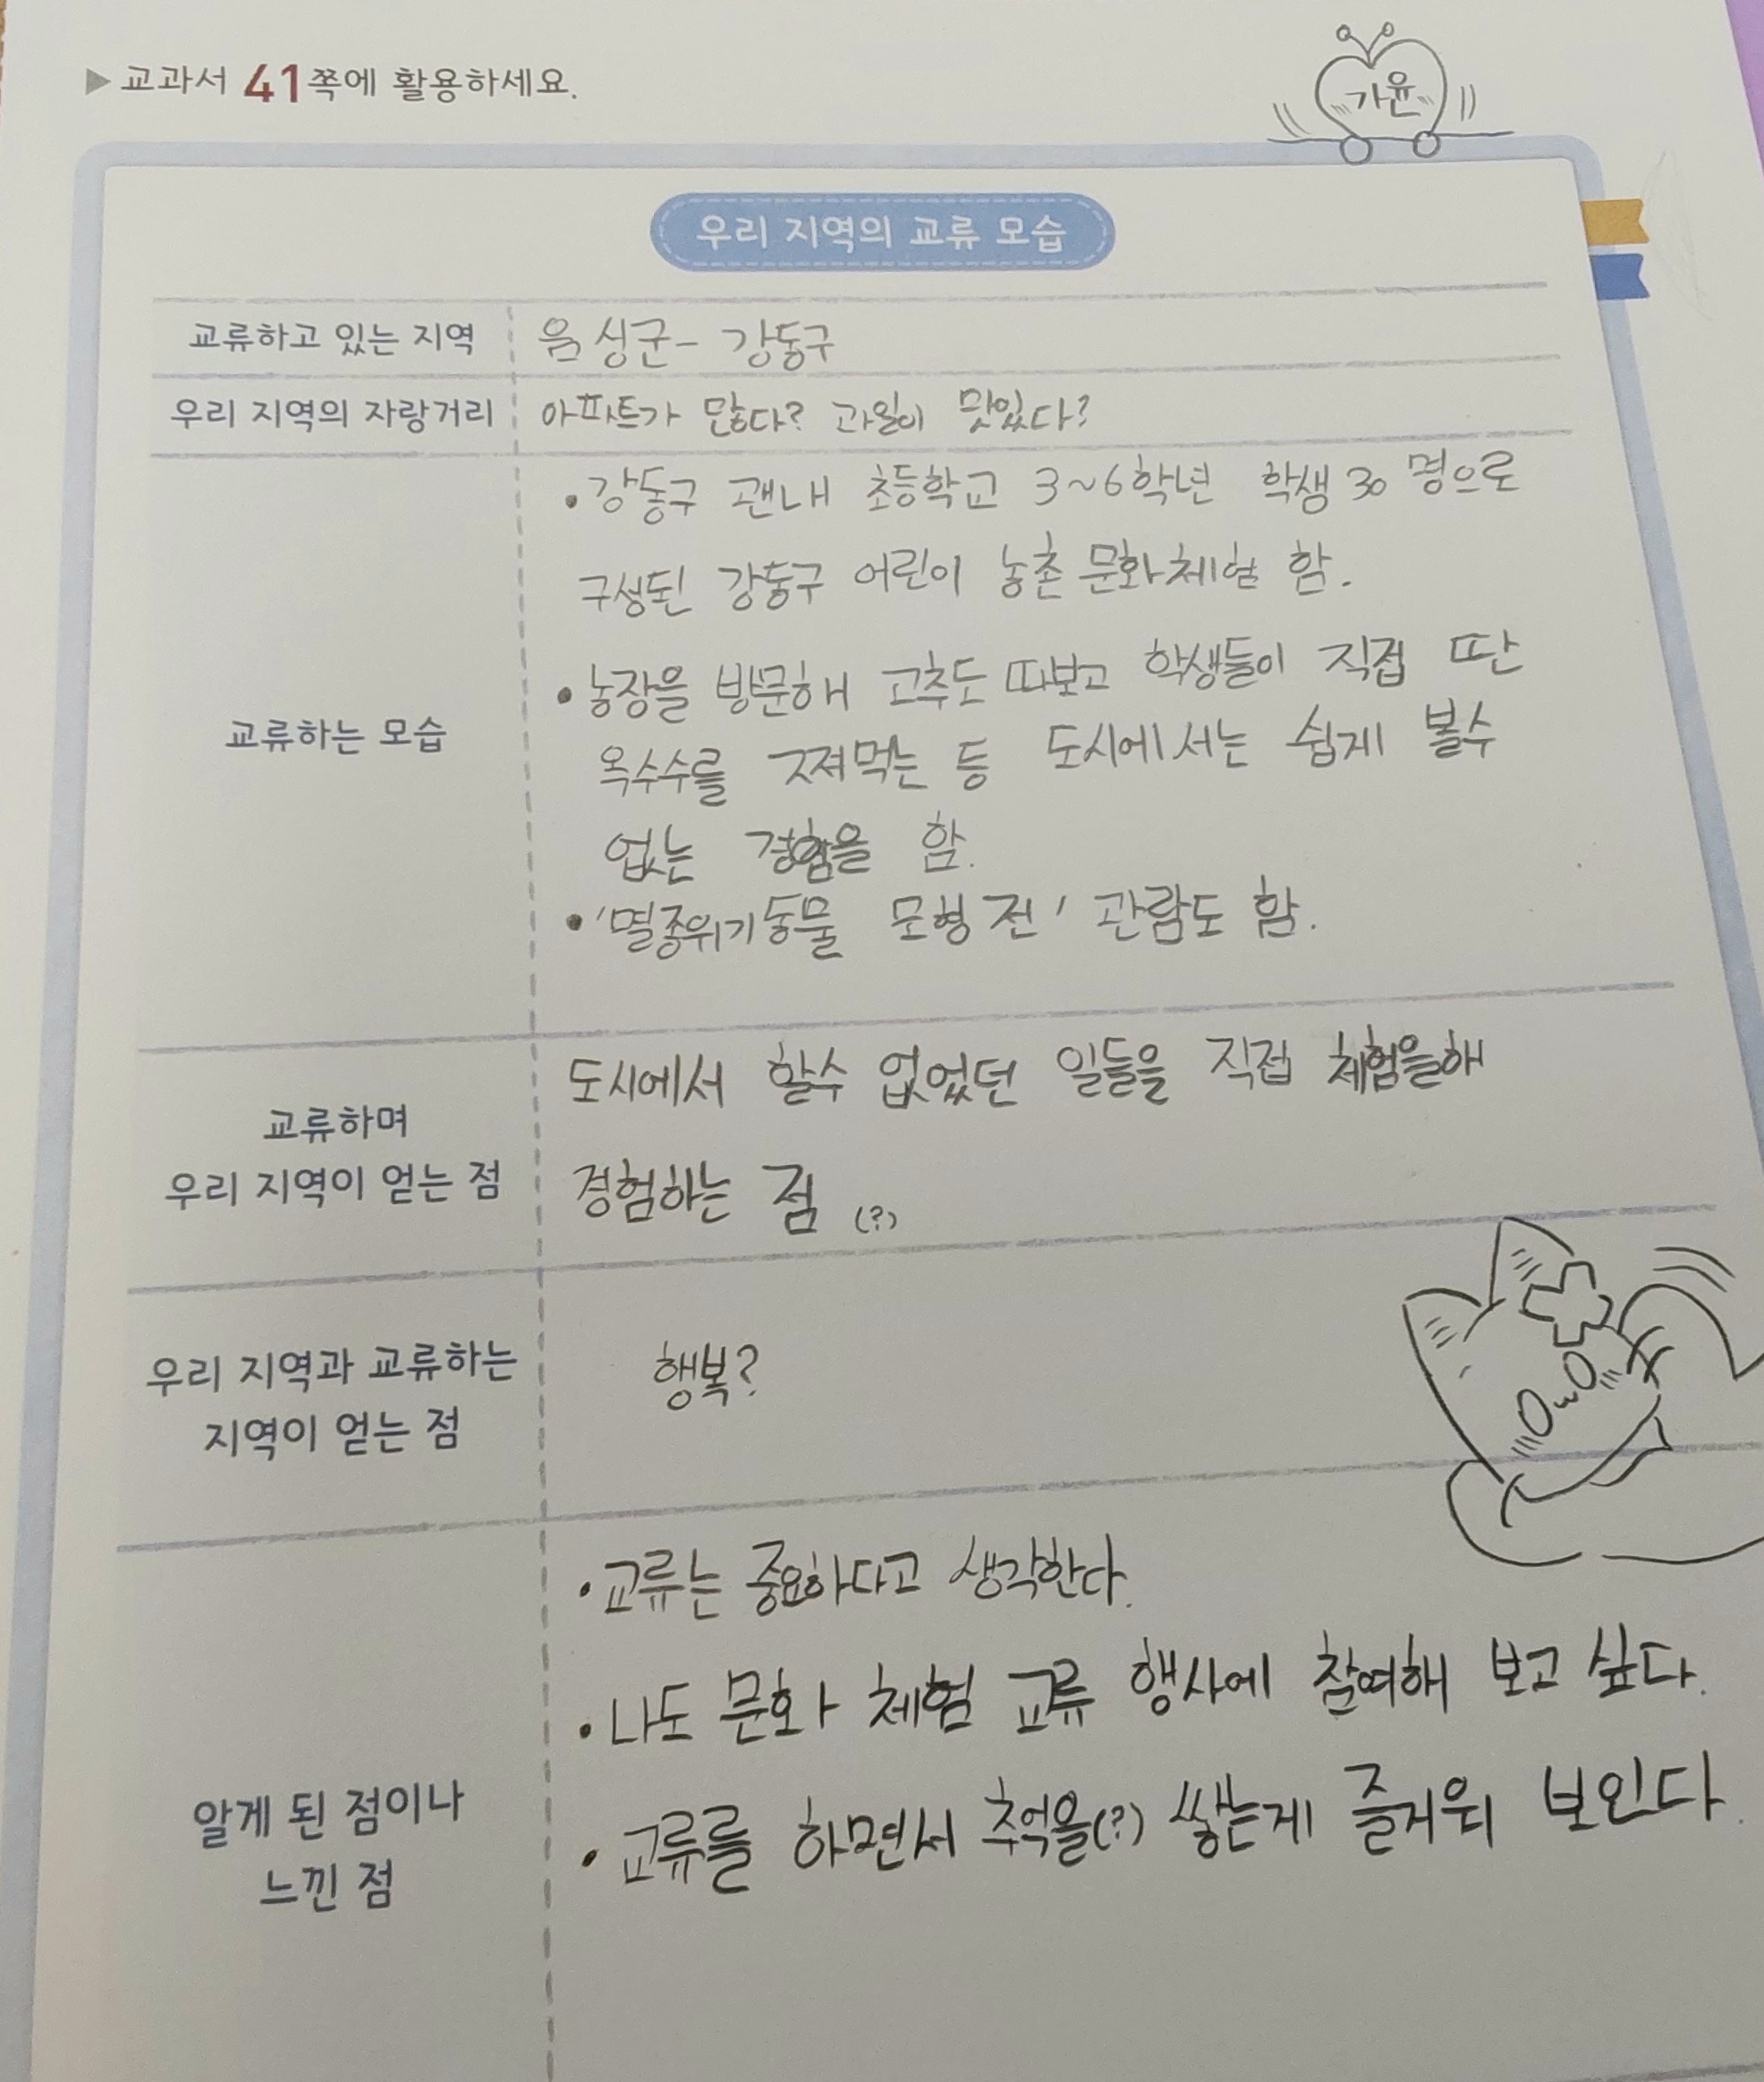 ▶ 교과서 41쪽에 활용하세요.
가윤
우리 지역의 교류 모습
교류하고 있는 지역
음성군 - 강동구
우리 지역의 자랑거리
아파트가 많다? 과일이 맛있다?
교류하는 모습
• 강동구 관내 초등학교 3~6학년 학생 30명으로
구성된 강동구 어린이 농촌 문화체험 함.
• 농장을 방문해 고추도 따보고 학생들이 직접 딴
옥수수를 쪄먹는 등 도시에서는 쉽게 볼수
없는 경험을 함.
• '멸종위기동물 모형전' 관람도 함.
교류하며
우리 지역이 얻는 점
도시에서 할수 없었던 일들을 직접 체험을해
경험하는 점 (?)
우리 지역과 교류하는
지역이 얻는 점
행복?
알게 된 점이나
느낀 점
• 교류는 중요하다고 생각한다.
• 나도 문화 체험 교류 행사에 참여해 보고 싶다.
• 교류를 하면서 추억을(?) 쌓는게 즐거워 보인다.